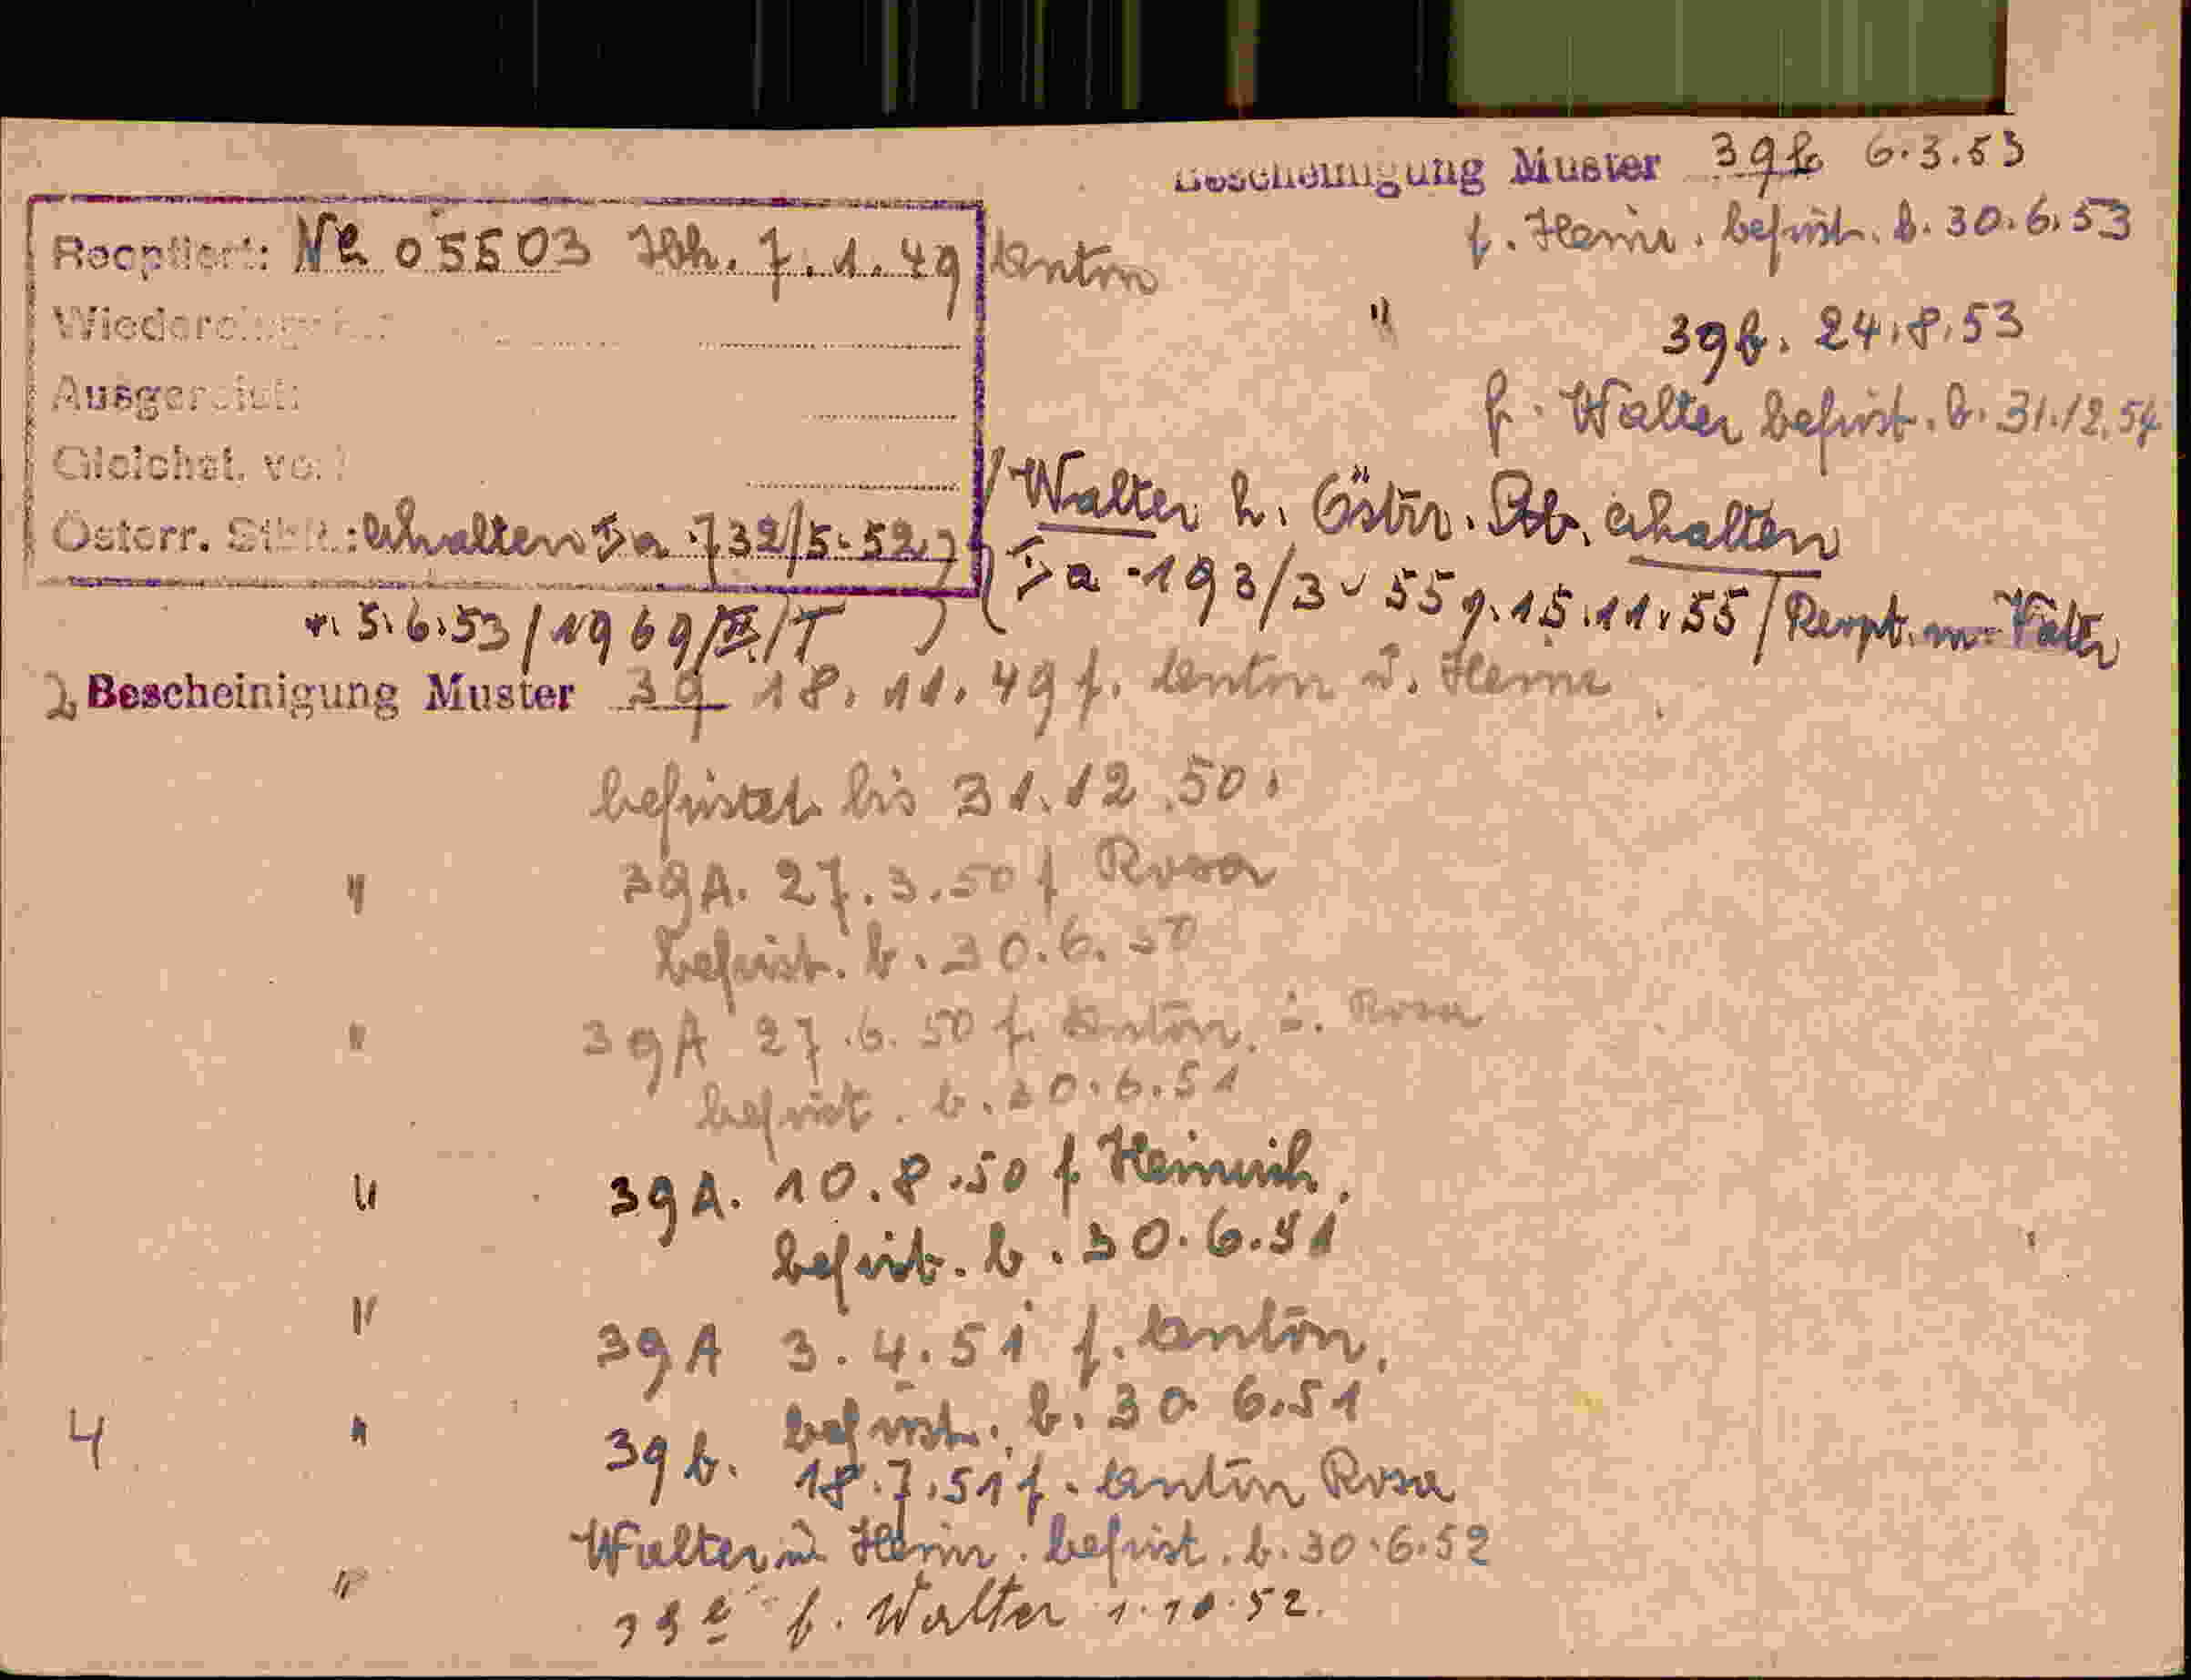 Bescheinigung Muster 39b 6.3.53
f. Heinr. befrist. b. 30.6.53
" 39b. 24.8.53
f. Walter befrist. b. 31.12.54
Reoptiert: Na 05503 Ibk. 7.1.49 Anton
Ausgereist:
Österr. Stbft.: erhalten Ia 732/5-52
r. 5.6.53/1969/T
Walter h. Östr. Stb. erhalten
Ia-193/3-55 v. 15.11.55/Reopt. m. Vater
2 Bescheinigung Muster 39 18.11.49 f. Anton u. Heinr
befristet bis 31.12.50.
" 39A. 27.3.50 f Rosa
befrist. b. 30.6.50
" 39A 27.6.50 f. Anton. u. Rosa
befrist. b. 30.6.51
" 39A. 10.8.50 f Heinrich.
befrist. b. 30.6.51
" 39A 3.4.51 f. Anton.
befrist. b. 30 6.51
4 " 39b. 18.7.51 f. Anton Rosa
Walter u. Heinr. befrist. b. 30.6.52
" f. Walter 1.10.52.